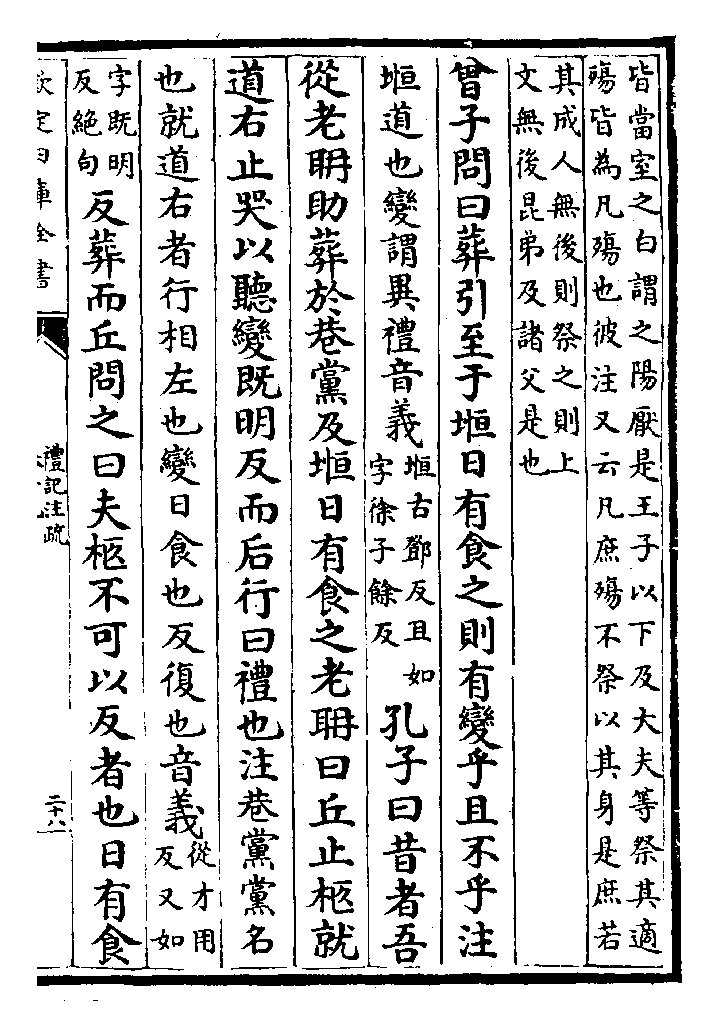 皆當室之白謂之陽厭是王子以下及大夫等祭其適
殤皆為凡殤也彼注又云凡庶殤不祭以其身是庶若
其成人無後則祭之則上
文無後昆弟及諸父是也
曾子問曰葬引至于堩日有食之則有變乎且不乎注
堩道也變謂異禮音義堩古鄧反且如字徐子餘反孔子曰昔者吾
從老聃助葬於巷黨及堩日有食之老聃曰丘止柩就
道右止哭以聽變既明反而后行曰禮也注巷黨黨名
也就道右者行相左也變日食也反復也音義從才用反又如
字既明反絕句反葬而丘問之曰夫柩不可以反者也日有食
欽定四庫全書
禮記注疏
二十八